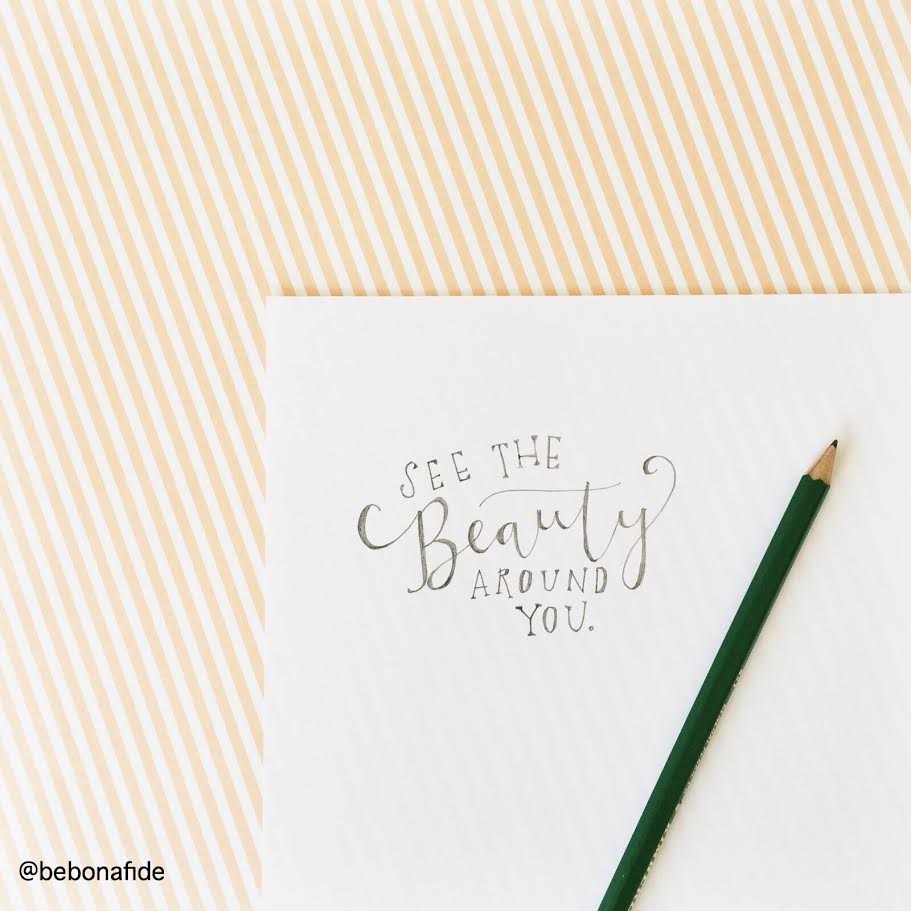 SEE THE
Beauty
AROUND
YOU.
@bebonafide